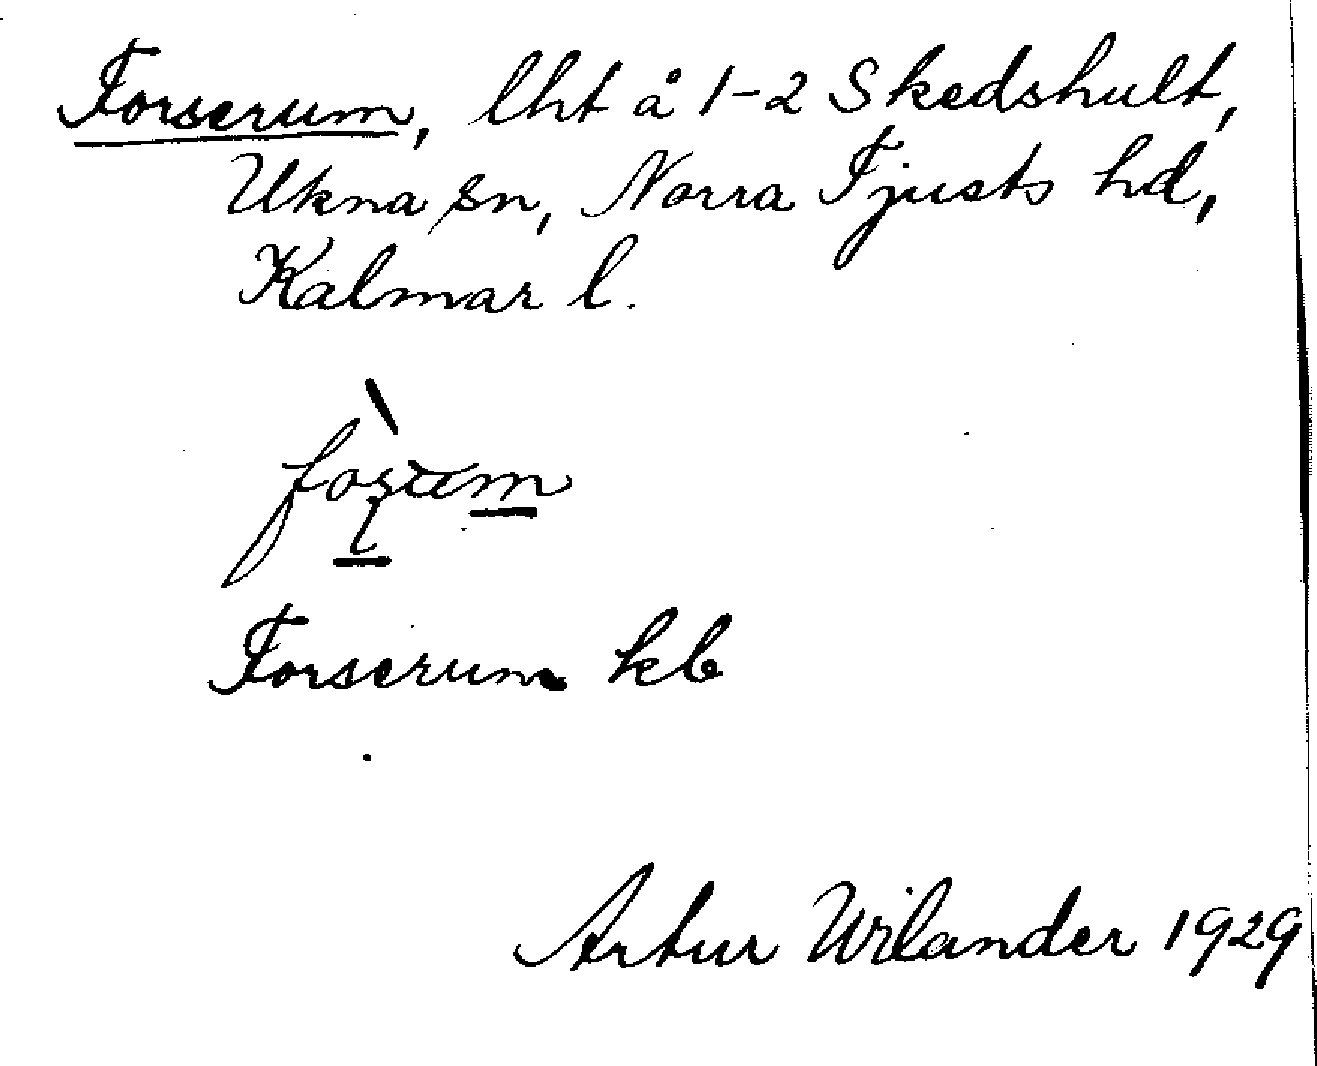 Forserum, lht å 1-2 Skedshult,
Ukna sn, Norra Tjusts hd,
Kalmar l.
Forserum kb
Artur Wilander 1929